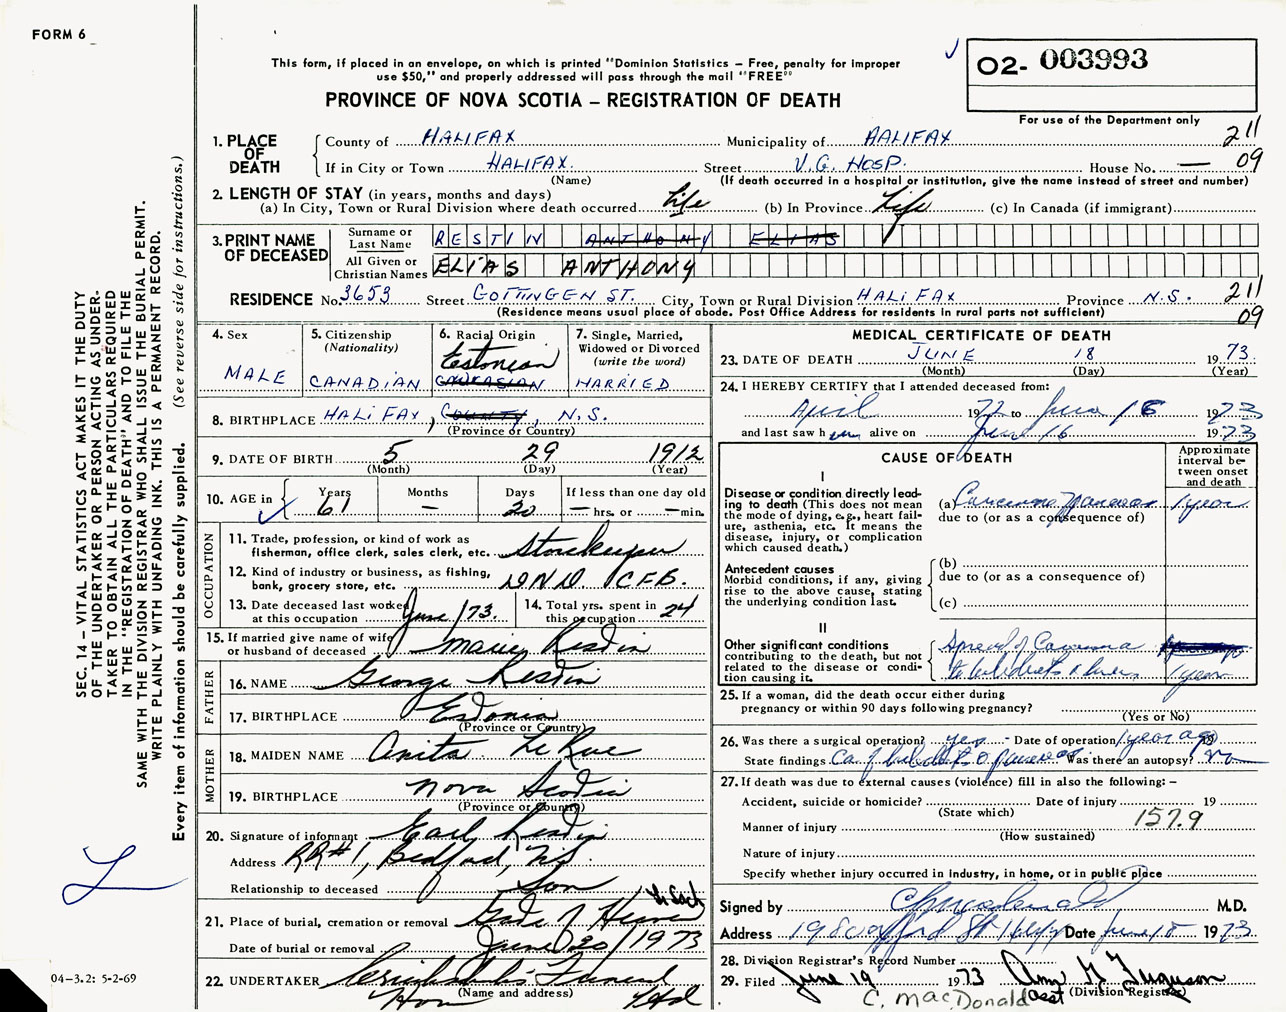 FORM 6
This form, if placed in an envelope, on which is printed "Dominion Statistics – Free, penalty for improper
use $50," and properly addressed will pass through the mail "FREE"
PROVINCE OF NOVA SCOTIA – REGISTRATION OF DEATH
02- 003993
For use of the Department only
211
09
1. PLACE OF DEATH
County of HALIFAX Municipality of HALIFAX
If in City or Town HALIFAX. Street V.G. HOSP. House No. —
(Name) (If death occurred in a hospital or institution, give the name instead of street and number)
2. LENGTH OF STAY (in years, months and days)
(a) In City, Town or Rural Division where death occurred Life (b) In Province Life (c) In Canada (if immigrant)
3. PRINT NAME OF DECEASED
Surname or Last Name RESTIN ANTHONY ELIAS
All Given or Christian Names ELIAS ANTHONY
RESIDENCE No. 3653 Street GOTTINGEN ST. City, Town or Rural Division HALIFAX Province N.S. 211
(Residence means usual place of abode. Post Office Address for residents in rural parts not sufficient) 09
4. Sex MALE
5. Citizenship (Nationality) CANADIAN
6. Racial Origin Estonian CAUCASIAN
7. Single, Married, Widowed or Divorced (write the word) MARRIED
8. BIRTHPLACE HALIFAX, COUNTY, N.S.
(Province or Country)
9. DATE OF BIRTH 5 29 1912
(Month) (Day) (Year)
10. AGE in Years 61 Months — Days 20 If less than one day old — hrs. or — min.
OCCUPATION
11. Trade, profession, or kind of work as fisherman, office clerk, sales clerk, etc. Storekeeper
12. Kind of industry or business, as fishing, bank, grocery store, etc. DND CFB.
13. Date deceased last worked at this occupation June/73.
14. Total yrs. spent in this occupation 24
15. If married give name of wife or husband of deceased Marie Restin
FATHER
16. NAME George Restin
17. BIRTHPLACE Estonia
(Province or Country)
MOTHER
18. MAIDEN NAME Anita LeRue
19. BIRTHPLACE Nova Scotia
(Province or Country)
20. Signature of informant Earl Restin
Address RR#1, Bedford, N.S.
Relationship to deceased Son
21. Place of burial, cremation or removal Gate of Heaven
Date of burial or removal June 20/1973
22. UNDERTAKER Cruikshank's Funeral
(Name and address)
Home Ltd
MEDICAL CERTIFICATE OF DEATH
23. DATE OF DEATH JUNE 18 1973
(Month) (Day) (Year)
24. I HEREBY CERTIFY that I attended deceased from:
April 1972 to June 16 1973
and last saw him alive on June 16 1973
CAUSE OF DEATH
Approximate interval between onset and death
I
Disease or condition directly leading to death (This does not mean the mode of dying, e.g., heart failure, asthenia, etc. It means the disease, injury, or complication which caused death.)
(a) Carcinoma Pancreas 1 year
due to (or as a consequence of)
Antecedent causes
Morbid conditions, if any, giving rise to the above cause, stating the underlying condition last.
(b)
due to (or as a consequence of)
(c)
II
Other significant conditions
contributing to the death, but not related to the disease or condition causing it.
Spread of Carcinoma
1 year
25. If a woman, did the death occur either during pregnancy or within 90 days following pregnancy?
(Yes or No)
26. Was there a surgical operation? yes - Date of operation 1 year ago
State findings Ca of pancreas Was there an autopsy? no
27. If death was due to external causes (violence) fill in also the following: –
Accident, suicide or homicide? Date of injury 19
(State which)
Manner of injury 157.9
(How sustained)
Nature of injury
Specify whether injury occurred in industry, in home, or in public place
Signed by M.D.
Address Date June 18 1973
28. Division Registrar's Record Number
29. Filed June 19 1973 Ann G Ferguson
(Division Registrar)
C. MacDonald Asst
SEC. 14 – VITAL STATISTICS ACT MAKES IT THE DUTY
OF THE UNDERTAKER OR PERSON ACTING AS UNDER-
TAKER TO OBTAIN ALL THE PARTICULARS REQUIRED
IN THE "REGISTRATION OF DEATH" AND TO FILE THE
SAME WITH THE DIVISION REGISTRAR WHO SHALL ISSUE THE BURIAL PERMIT.
WRITE PLAINLY WITH UNFADING INK. THIS IS A PERMANENT RECORD.
Every item of information should be carefully supplied. (See reverse side for instructions.)
04-3.2: 5-2-69